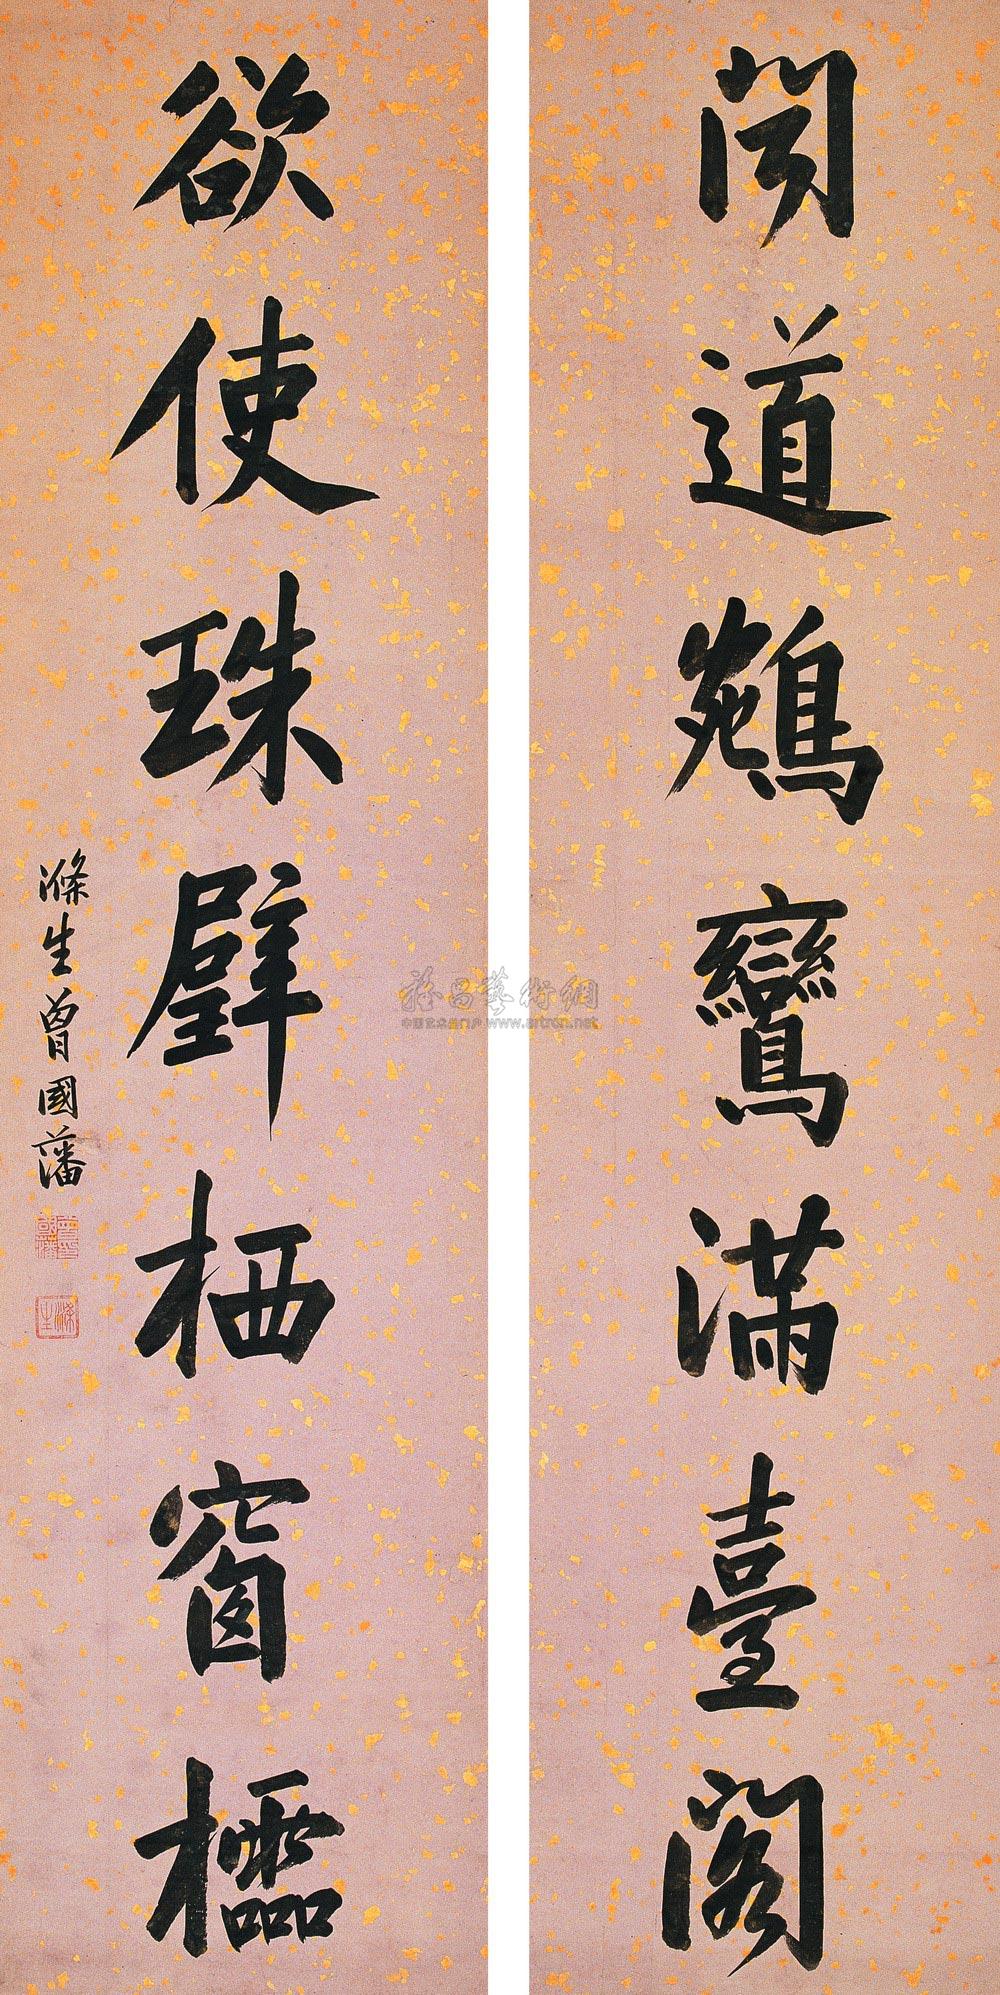 聞道鵷鸞滿臺閣
欲使珠璧栖窗櫺
滌生曾國藩
曾印國藩
滌生
雅昌藝術網
中国艺术品门户 www.artron.net